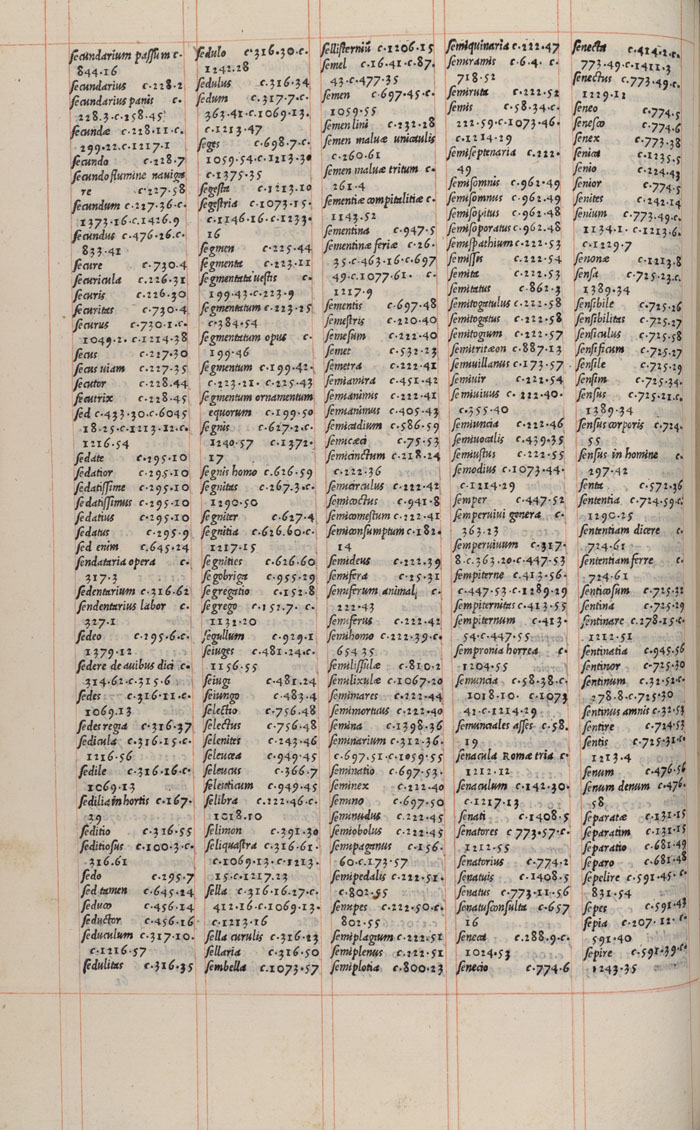 secundarium passum c.
844.16
secundarius c.228.2
secundarius panis c.
228.3.c.258.45
secundæ c.228.11.c.
299.22.c.1217.1
secundo c.228.7
secundo flumine nauiga
re c.227.58
secundum c.227.36.c.
1373.16.c.1426.9
secundus c.476.26.c.
833.41
secure c.730.4
securicula c.226.31
securis c.226.30
securitas c.730.4
securus c.730.1.c.
1049.2.c.1214.38
secus c.227.30
secus uiam c.227.35
secutor c.228.44
secutrix c.228.45
sed c.433.30.c.6045
18.25.c.1213.12.c.
1216.54
sedate c.295.10
sedatior c.295.10
sedatissime c.295.10
sedatissimus c.295.10
sedatius c.295.10
sedatus c.295.9
sed enim c.645.24
sendataria opera c.
317.3
sedentarium c.316.62
sendentarius labor c.
327.1
sedeo c.295.6.c.
1379.12
sedere de auibus dici c.
314.62.c.315.6
sedes c.316.11.c.
1069.13
sedes regia c.316.37
sedicula c.316.15.c.
1216.56
sedile c.316.16.c.
1069.13
sedilia in hortis c.167.
29
seditio c.316.55
seditiosus c.100.3.c.
316.61
sedo c.295.7
sed tamen c.645.24
seduco c.456.14
seductor c.456.16
seduculum c.317.10.
c.1216.57
sedulitas c.316.35
sedulo c.316.30.c.
1242.28
sedulus c.316.34
sedum c.317.7.c.
363.41.c.1069.13.
c.1213.47
seges c.698.7.c.
1059.54.c.1213.30
c.1375.35
segesta c.1213.10
segestria c.1073.15.
c.1146.16.c.1233.
16
segmen c.225.44
segmenta c.223.11
segmentata uestis c.
199.43.c.223.9
segmentatum c.223.25
c.384.54
segmentatum opus c.
199.46
segmentum c.199.42.
c.223.21.c.225.43
segmentum ornamentum
equorum c.199.50
segnis c.627.2.c.
1240.57 c.1372.
17
segnis homo c.626.59
segnitas c.267.3.c.
1290.50
segniter c.627.4
segnitia c.626.60.c.
1217.15
segnities c.626.60
segobriga c.955.29
segregatio c.152.8
segrego c.152.7. c.
1132.20
segullum c.929.1
seiuges c.481.24.c.
1156.55
seiugi c.481.24
seiungo c.483.4
selectio c.756.48
selectus c.756.48
selenites c.243.46
seleucea c.949.45
seleucus c.366.7
seleuticum c.949.45
selibra c.222.46.c.
1018.10
selimon c.391.30
seliquastra c.316.61.
c.1069.13.c.1213.
15.c.1217.23
sella c.316.16.27.c.
412.16.c.1069.13.
c.1213.16
sella curulis c.316.23
sellaria c.316.50
sembella c.1073.57
sellisterniũ c.1206.15
semel c.16.41.c.87.
43.c.477.35
semen c.697.45.c.
1059.55
semen lini c.232.28
semen maluæ uniuculis
c.260.61
semen maluæ tritum c.
261.4
sementiæ compitalitiæ c.
1143.52
sementina c.947.5
sementinæ feriæ c.26.
35.c.463.16.c.697
49.c.1077.61. c.
1217.9
sementis c.697.48
semestris c.220.40
semesum c.222.40
semet c.532.23
semetra c.222.41
semiamira c.451.42
semianimis c.222.41
semianimus c.405.43
semicadium c.586.59
semicæci c.75.53
semicinctum c.218.24
c.222.36
semicirculus c.222.42
semicoctus c.941.8
semicomestum c.222.41
semiconsumptum c.182.
14
semideus c.222.39
semifera c.25.31
semiferum animal c.
222.43
semiferus c.222.42
semihomo c.222.39.c.
654.35
semilissulæ c.810.2
semilixulæ c.1067.20
semimares c.222.44
semimortuus c.222.40
semina c.1398.36
seminarium c.312.36.
c.697.51.c.1059.55
seminatio c.697.53.
seminex c.222.40
semino c.697.50
seminudus c.222.45
semiobolus c.222.45
semipaganus c.156.
60.c.173.57
semipedalis c.222.51.
c.802.55
semipes c.222.50.c.
802.55
semiplagium c.222.51
semiplenus c.222.51
semiplotia c.800.23
semiquinaria c.222.47
semiramis c.6.4. c.
718.52
semiruta c.222.52
semis c.58.34.c.
222.59.c.1073.46.
c.1214.29
semiseptenaria c.222.
49
semisomnis c.962.49
semisomnus c.962.49
semisopitus c.962.48
semisoporatus c.962.48
semispathium c.222.53
semissis c.222.54
semita c.222.53
semitatus c.862.3
semitogatulus c.222.58
semitogatus c.222.58
semitogium c.222.57
semitritæon c.887.13
semuillanus c.173.57
semiuir c.222.54
semiuiuus c.222.40.
c.355.40
semiuncia c.222.46
semiuocalis c.439.35
semiustus c.222.55
semodius c.1073.44.
c.1214.29
semper c.447.52
semperuiui genera c.
363.23
semperuiuum c.317.
8.c.363.20.c.447.53
sempiterne c.413.56.
c.447.53.c.1289.29
sempiternitas c.413.55
sempiternum c.413.
54.c.447.55
sempronia horrea c.
1204.55
semuncia c.58.38.c.
1018.10. c.1073
41.c.1214.29
semunciales asses c.58.
19
senacula Romæ tria c.
1212.12
senaculum c.142.30.
c.1217.13
senati c.1408.5
senatores c 773.57.c.
1212.55
senatorius c.774.2
senatuis c.1408.5
senatus c.773.11.56
senatusconsulta c.657
16
seneca c.288.9.c.
1024.53
senecio c.774.6
senecta c.414.2.c.
773.49.c.1411.3
senectus c.773.49.c.
1229.11
seneo c.774.5
senesco c.774.6
senex c.773.38
senica c.1235.5
senio c.224.43
senior c.774.5
senites c.242.14
senium c.773.49.c.
1134.1. c.1213.6.
c.1229.7
senonæ c.1213.8
sensa c.725.23.c.
1389.34
sensibile c.725.26
sensibilitas c.725.27
sensiculus c.725.58
sensificum c.725.27
sensile c.725.29
sensim c.725.34.
sensus c.725.21.c.
1389.34
sensus corporis c.724.
55
sensus in homine c.
297.42
senta c.572.36
sententia c.724.59.c.
1290.25
sententiam dicere c.
724.61
sententiam ferre c.
724.61
senticosum c.725.32
sentina c.725.29
sentinare c.278.15.c.
1212.51
sentinatia c.945.56
sentinor c.725.30
sentinum c.31.52.c.
278.8.c.725.30
sentinus amnis c.32.53
sentire c.724.53
sentis c.725.31.c.
1213.4
senum c.476.56
senum denum c.476.
58
separatæ c.131.15
separatim c.131.15
separatio c.681.49
separo c.681.48
sepelire c.591.45.c.
831.54
sepes c.591.43
sepia c.207.12.c.
591.40
sepire c.591.39.c.
1243.35